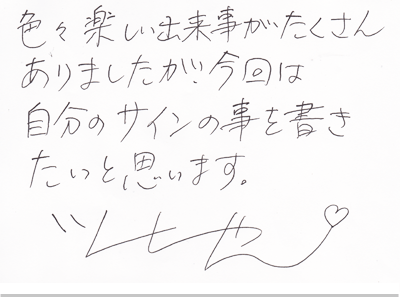 色々楽しい出来事がたくさん
ありましたが、今回は
自分のサインの事を書き
たいと思います。